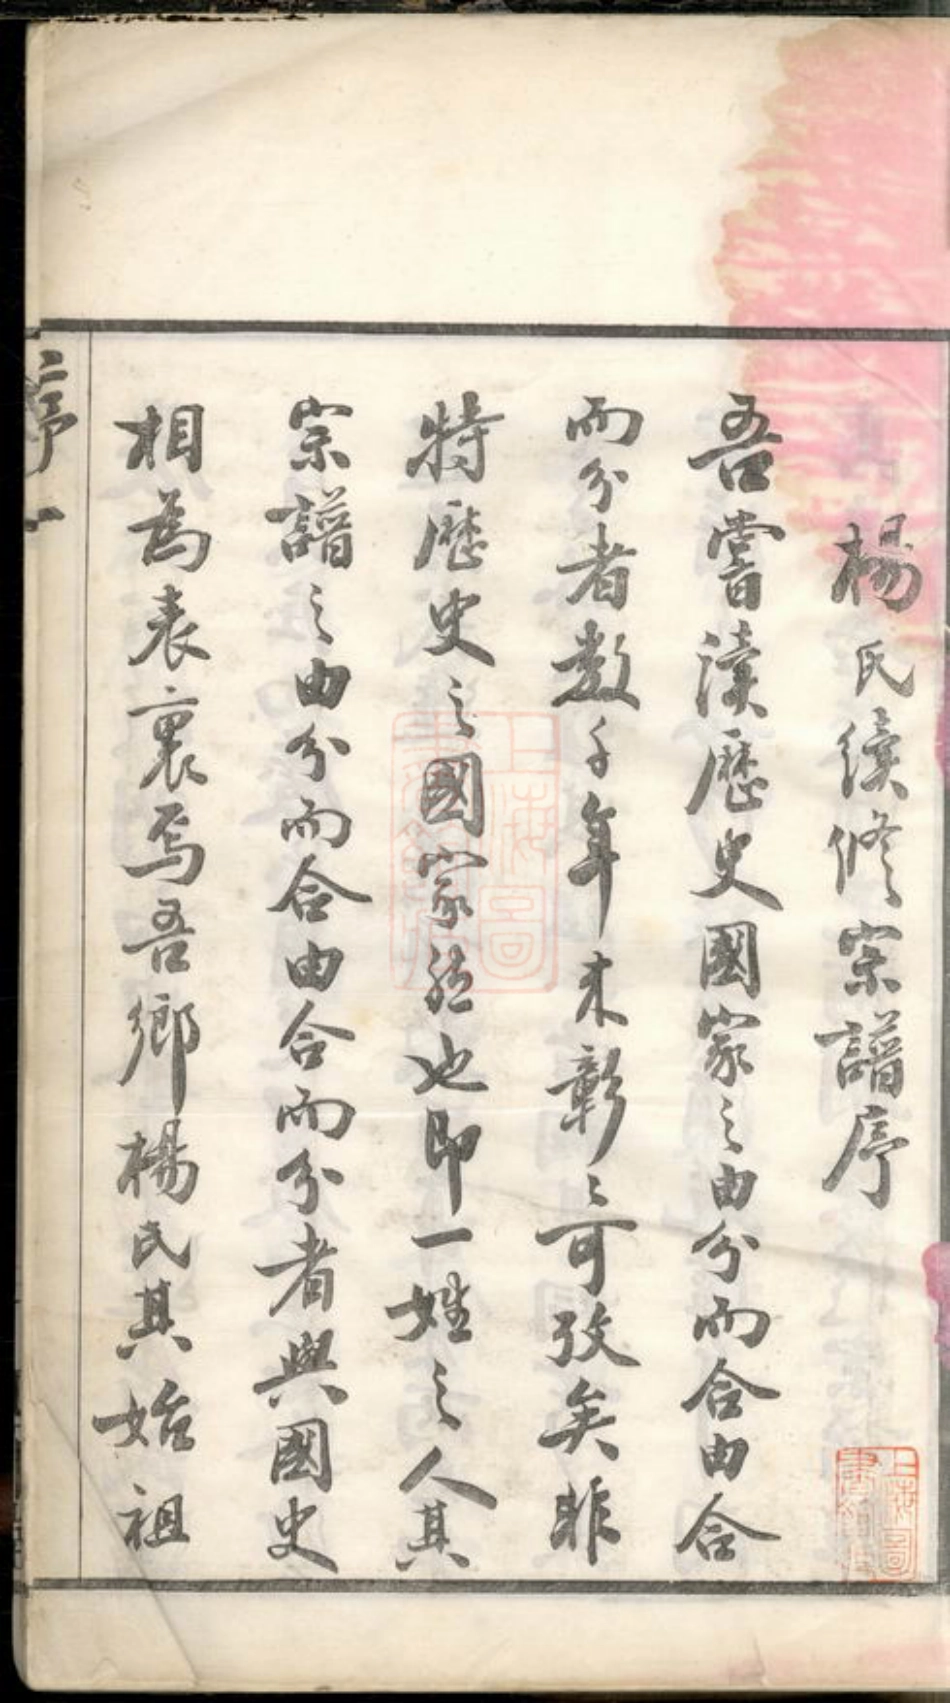 楊氏續修宗譜序
吾嘗讀歷史國家之由分而合由合
而分者數千年来彰彰可攷矣非
特歷史之國家然也即一姓之人其
宗譜之由分而合由合而分者與國史
相為表裏焉吾鄉楊氏其始祖
序一
上海圖書館藏